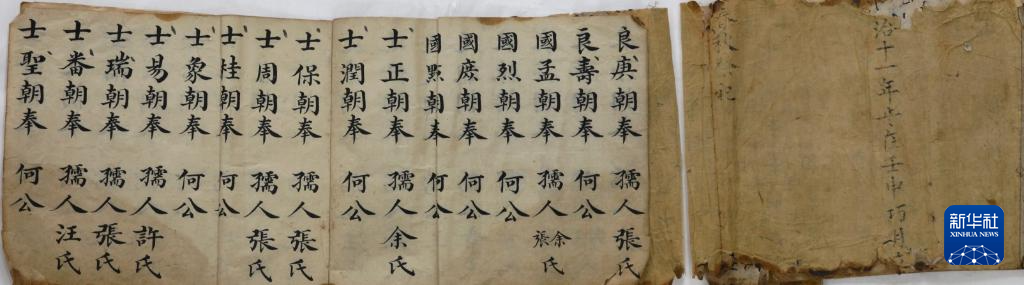 治十一年歲在壬申巧月
祭祀
良庚朝奉 孺人張氏
良壽朝奉 何公
國孟朝奉 孺人余張氏
國烈朝奉 何公
國慶朝奉 何公
國點朝奉 何公
士正朝奉 孺人余氏
士潤朝奉 何公
士保朝奉 孺人張氏
士周朝奉 孺人張氏
士桂朝奉 何公
士象朝奉 何公
士易朝奉 孺人許氏
士瑞朝奉 孺人張氏
士番朝奉 孺人汪氏
士聖朝奉 何公
新华社
XINHUA NEWS